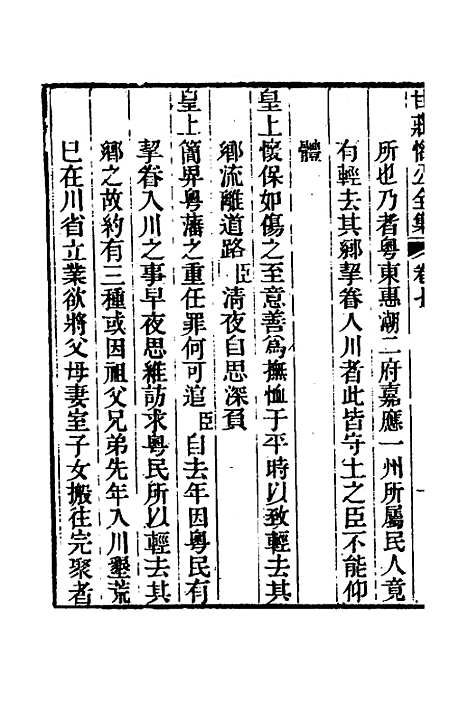 甘莊恪公全集 卷七
所也乃者粤東惠潮二府嘉應一州所屬民人竟
有輕去其鄉挈眷入川者此皆守土之臣不能仰
體
皇上懷保如傷之至意善為撫恤于平時以致輕去其
鄉流離道路臣清夜自思深負
皇上簡畀粤藩之重任罪何可逭臣自去年因粤民有
挈眷入川之事早夜思維訪求粤民所以輕去其
鄉之故約有三種或因祖父兄弟先年入川墾荒
已在川省立業欲將父母妻室子女搬往完聚者